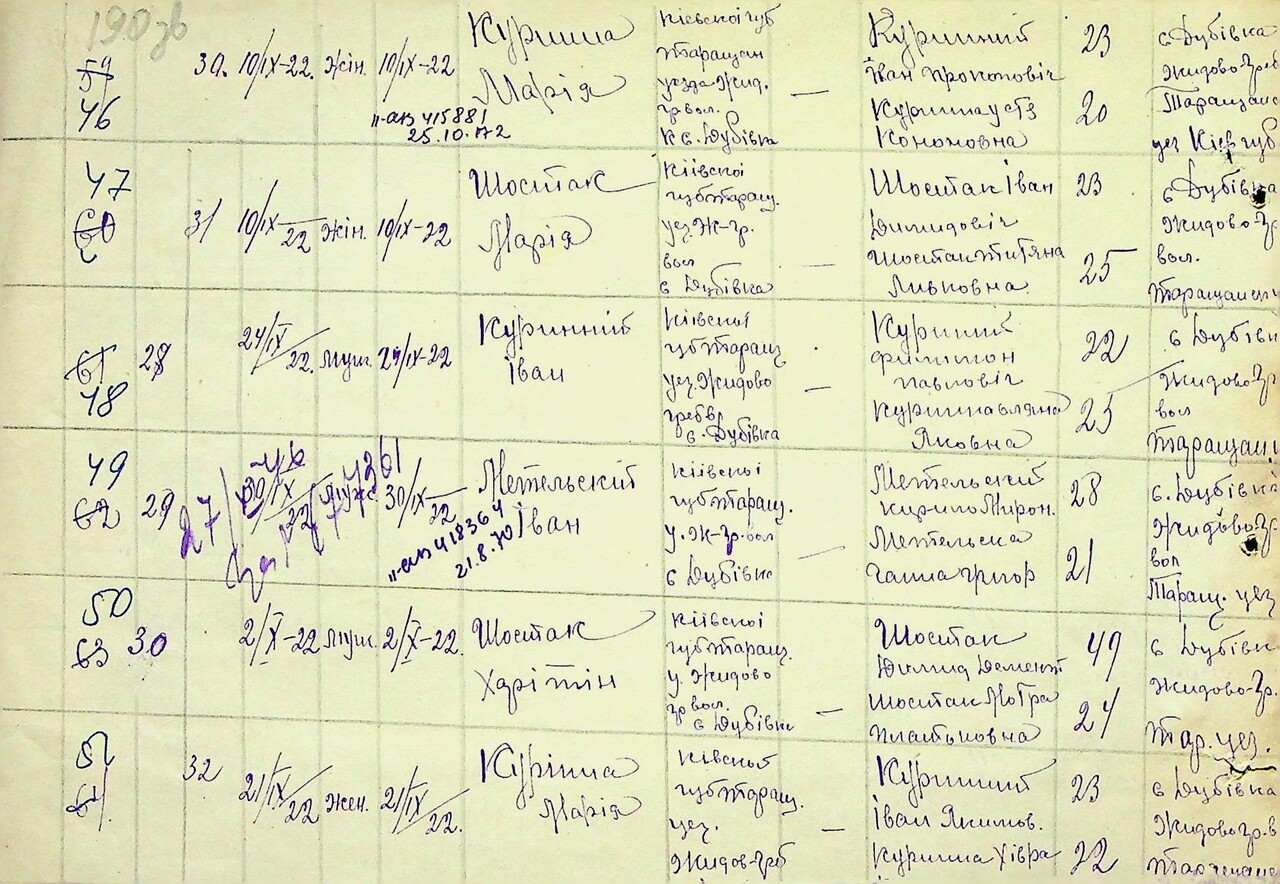 190 зв
59
46
30. 10/IX-22. Жін. 10/IX-22
415881
25.10.72
Куринна
Марія
Кіевскої губ
Таращан
уезда Жид.
гр вол.
с. Дубівка
—
Куринний
Іван Прокоповіч
Куринна Устя
Кононовна
23
20
с Дубівка
Жидово-Греб
Таращанс
уез Кіев губ
47
60
31 10/IX-22 Жін. 10/IX-22
Шостак
Марія
Кіівскої
губ Таращ.
уез. Ж-гр.
вол
с Дубівка
—
Шостак Іван
Димидовіч
Шостак Титяна
Ливковна
23
25
с Дубівка
Жидово-Гр
вол.
Таращанск
61
48
28
24/IX 22. Муж. 24/IX-22
Куринний
Іван
Кіівскої
губ Таращ
уез. Жидово
греб в
с. Дубівка
—
Куриний
Филімон
Павловіч
Куринна Уляна
Яковна
22
25
с Дубівк
Жидово-Гр
вол
Таращан.
49
62
29
30/IX 22 30/IX-22
418364
21.8.70
Метельский
Іван
Кіівскої
губ Таращ.
у. Ж-Гр. вол
с Дубівка
—
Метельский
Кирило Мирон.
Метельска
Ганна Григор
28
21
с. Дубівка
Жидово-Гр
вол
Таращ. уез
50
63
30
2/X-22 Муж. 2/X-22.
Шостак
Харітін
Кіівскої
губ Таращ.
у. Жидово
гр вол.
с Дубівка
—
Шостак
Димид Демент
Шостак Мотра
Платьковна
49
24
с Дубівк
Жидово-Гр.
Тар. уез.
51
64
32
21/IX 22 Жен. 21/IX 22.
Курінна
Марія
Ківской
губ Таращ.
уез.
Жидов-Греб
—
Куринний
Іван Якимов.
Куринна Хівра
23
22
с Дубівка
Жидово гр. в
Таращанс